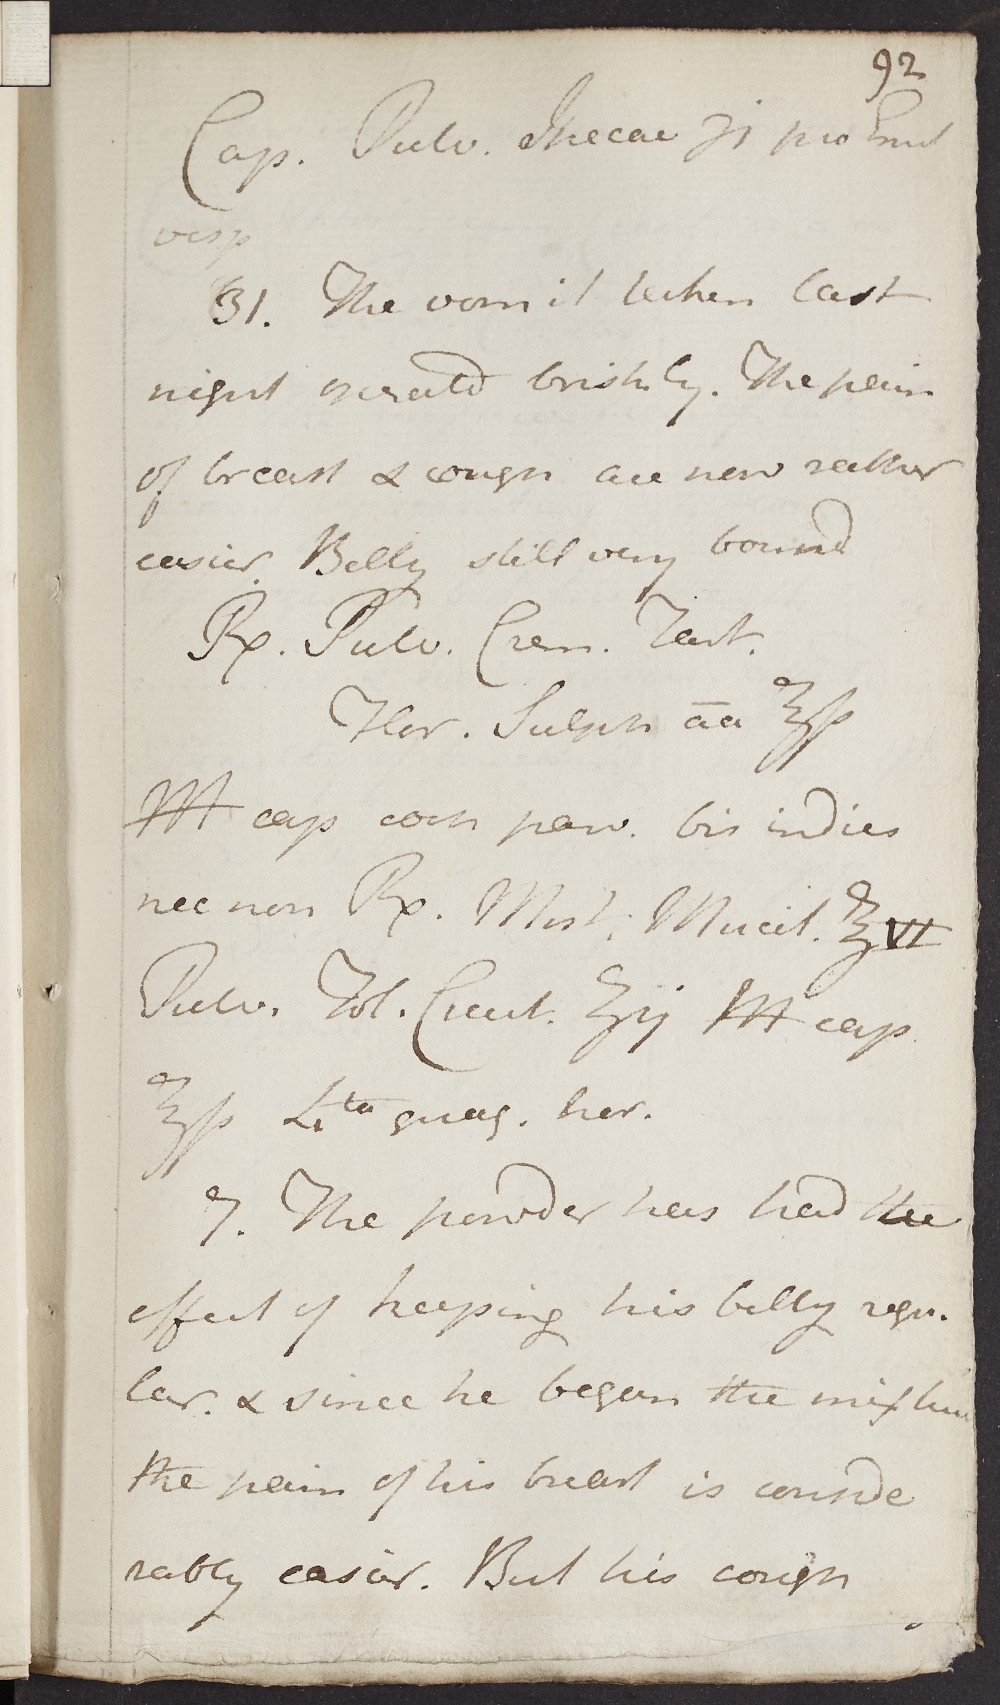 92
Cap. Pulv. Ipecac ʒi pro Emet
vesp
31. The vomit taken last
night operated briskly. The pain
of breast & cough are now rather
easier. Belly still very bound
Rx. Pulv. Crem. Tart.
Flor. Sulph āā ℥ss
M cap coch parv. bis indies
nec non Rx. Mist. Mucil. ℥VI
Pulv. Fol. Cicut. ʒij M cap
℥ss 4ta quaq. hor.
7. The powder has had the
effect of keeping his belly regu-
lar. & since he began the mixture
the pain of his breast is conside
rably easier. But his cough